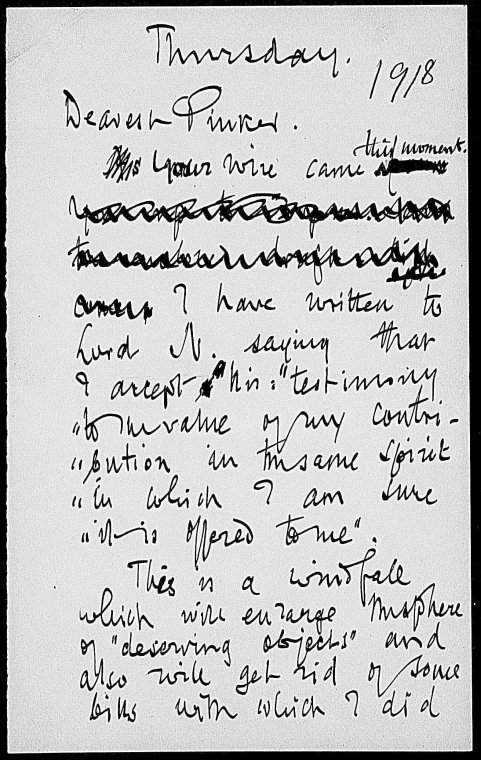 Thursday.
1918
Dearest Pinker.
Your wire came this moment.
I have written to
Lord N. saying that
I accept his: "testimony
"to the value of my contri-
"bution in the same spirit
"in which I am sure
"it is offered to me".
This is a windfall
which will enlarge the sphere
of "deserving objects" and
also will get rid of some
bills with which I did